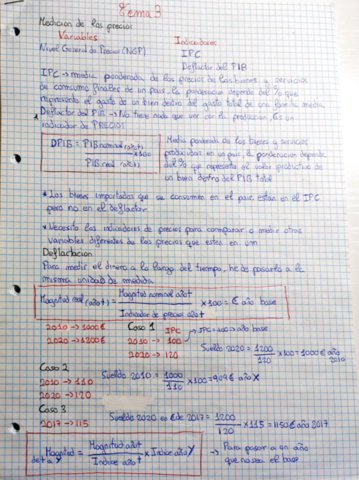 Tema 3
Medicion de los precios
Variables Indicadores
Nivel General de Precios (NGP) IPC
Deflactor del PIB
IPC → media ponderada de los precios de los bienes y servicios
de consumo finales de un pais, la ponderacion depende del % que
representa el gasto de un bien dentro del gasto total de una familia media
Deflactor del PIB → No tiene nada que ver con la produccion, Es un
indicador de PRECIOS!
DPIB = PIB nominal (año t) / PIB real (año t) x100
Media ponderada de los bienes y servicios
producidos en un pais, la ponderacion depende
del % que representa el valor productivo de
un bien dentro del PIB total
* Los bienes importados que se consumen en el pais estan en el IPC
pero no en el deflactor
* Necesito los indicadores de precios para comparar o medir otras
variables diferentes de los precios que esten en um
Deflactacion
Para medir el dinero a lo largo del tiempo, he de pasarlo a la
misma unidad de medida
Magnitud real (año t) = Magnitud nominal año t / Indicador de precios año t x100 = € año base
2010 → 1000€ Caso 1 IPC → IPC=100 → año base
2020 → 1200€ 2010 → 100
2020 → 120 Sueldo 2020 = 1200/120 x100 = 1000€ año 2010
Caso 2
2010 → 110 Sueldo 2010 = 1000/110 x100 = 909€ año X
2020 → 120
Caso 3
2017 → 115 Sueldo 2020 en € de 2017 = 1200/120 x 115 = 1150€ año 2017
Magnitud de t a Y = Magnitud año t / Indice año t x Indice año Y → Para pasar a un año
que no sea el base